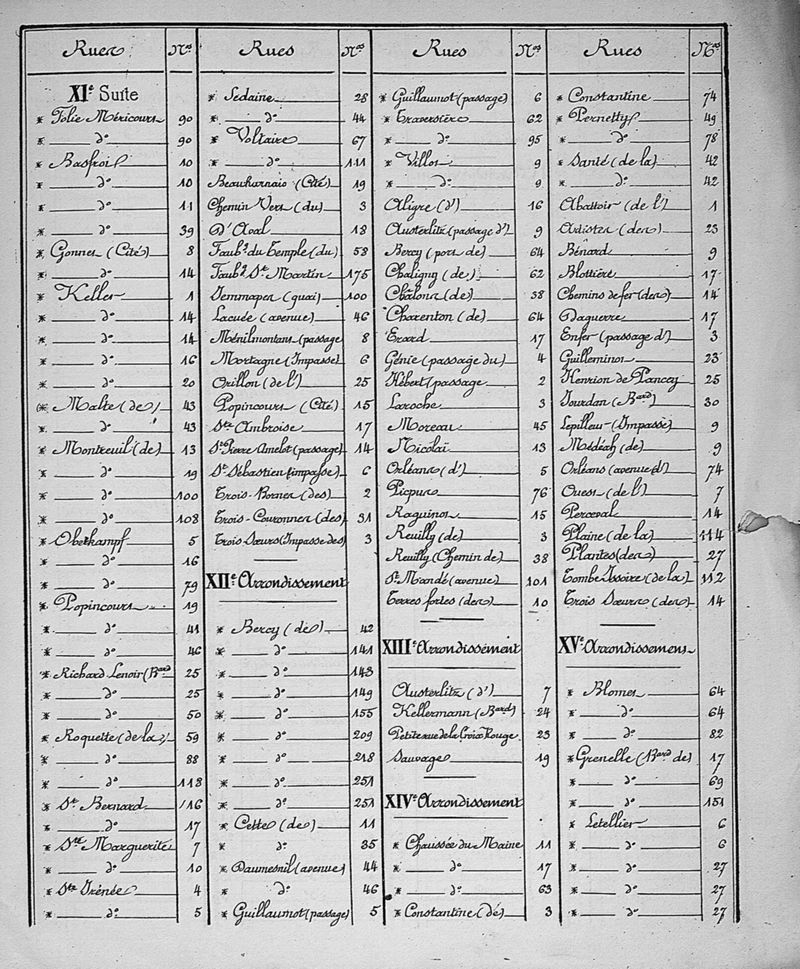 Rues Nos
XIe Suite
* Folie Méricourt 90
* do 90
* Basfroi 10
* do 10
* do 11
* do 39
* Gonnes (Cité) 8
* do 14
* Keller 1
* do 14
* do 14
* do 16
* do 20
(* Malte (de) 43
* do 43
* Montreuil (de) 13
* do 19
* do 100
* do 108
* Oberkampf 5
* do 16
* do 79
* Popincourt 19
* do 41
* do 46
* Richard Lenoir (Bard 25
* do 25
* do 50
* Roquette (de la) 59
* do 88
* do 118
* St Bernard 16
* do 17
* Ste Marguerite 7
* do 10
* Ste Irénée 4
* do 5
Rues Nos
* Sedaine 28
* do 44
* Voltaire 67
* do 111
Beauharnais (Cité) 19
Chemin Vert (du) 3
D'Aval 18
Faubg du Temple (du) 58
Faubg St Martin 175
Jemmapes (quai) 100
Lacuée (avenue) 46
Ménilmontant (passage 8
Mortagne (Impasse) 6
Orillon (de l') 25
Popincourt (Cité) 15
Ste Ambroise 17
St Pierre Amelot (passage) 14
St Sébastien (impasse) 6
Trois-Bornes (des) 2
Trois-Couronnes (des) 31
Trois Sœurs (Impasse des) 3
XIIe Arrondissement
* Bercy (de) 42
* do 141
* do 143
* do 149
* do 155
* do 209
* do 218
* do 251
* do 251
* Cette (de) 11
* do 35
* Daumesnil (avenue) 44
* do 46
* Guillaumot (passage) 5
Rues Nos
* Guillaumot (passage) 6
* Traversière 62
* do 95
* Villot 9
* do 9
Aligre (d') 16
Austerlitz (passage d') 9
Bercy (port de) 64
Chaligny (de) 62
Châlons (de) 38
Charenton (de) 64
Erard 17
Génie (passage du) 4
Hébert (passage 2
Laroche 3
Moreau 45
Nicolaï 13
Orléans (d') 5
Picpus 76
Raguinot 15
Reuilly (de) 3
Reuilly (Chemin de) 38
St Mandé (avenue) 101
Terres fortes (des) 10
XIIIe Arrondissement
Austerlitz (d') 7
Kellermann (Bard) 24
Petite rue de la Croix Rouge 23
Sauvage 19
XIVe Arrondissement
* Chaussée du Maine 11
* do 17
* do 63
* Constantine (de) 3
Rues Nos
* Constantine 74
* Pernetty 49
* do 78
* Santé (de la) 42
* do 42
Abattoir (de l') 1
Artistes (des) 23
Bénard 9
Blottière 17
Chemins de fer (des) 14
Daguerre 17
Enfer (passage d') 3
Guilleminot 23
Henrion de Pancey 25
Jourdan (Bard) 30
Lepilleur (Impasse) 9
Médéah (de) 9
Orléans (avenue d') 74
Ouest (de l') 7
Perceval 14
Plaine (de la) 114
Plantes (des) 27
Tombe Issoire (de la) 112
Trois Sœurs (des) 14
XVe Arrondissement
* Blomet 64
* do 64
* do 82
* Grenelle (Bard de) 17
* do 69
* do 151
* Letellier 6
* do 6
* do 27
* do 27
* do 27